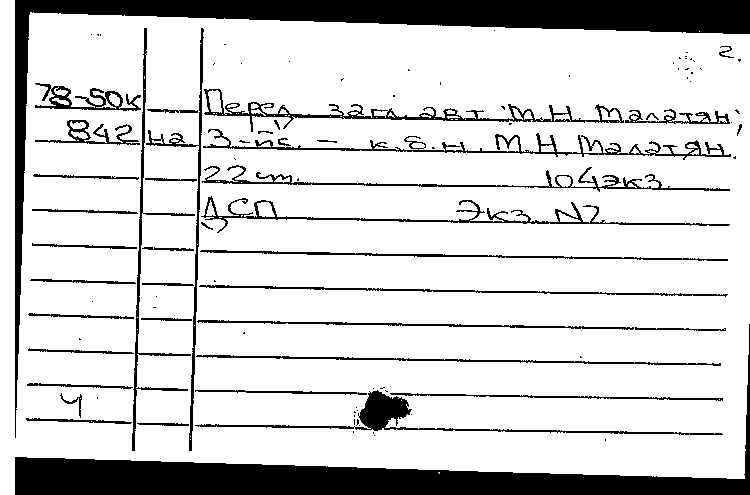 2.
78-50к Перед загл. авт.: М.Н. Малатян;
842 на З-пс. – к.б.н. М.Н. Малатян.
22 см. 104 экз.
ДСП Экз. N2
4